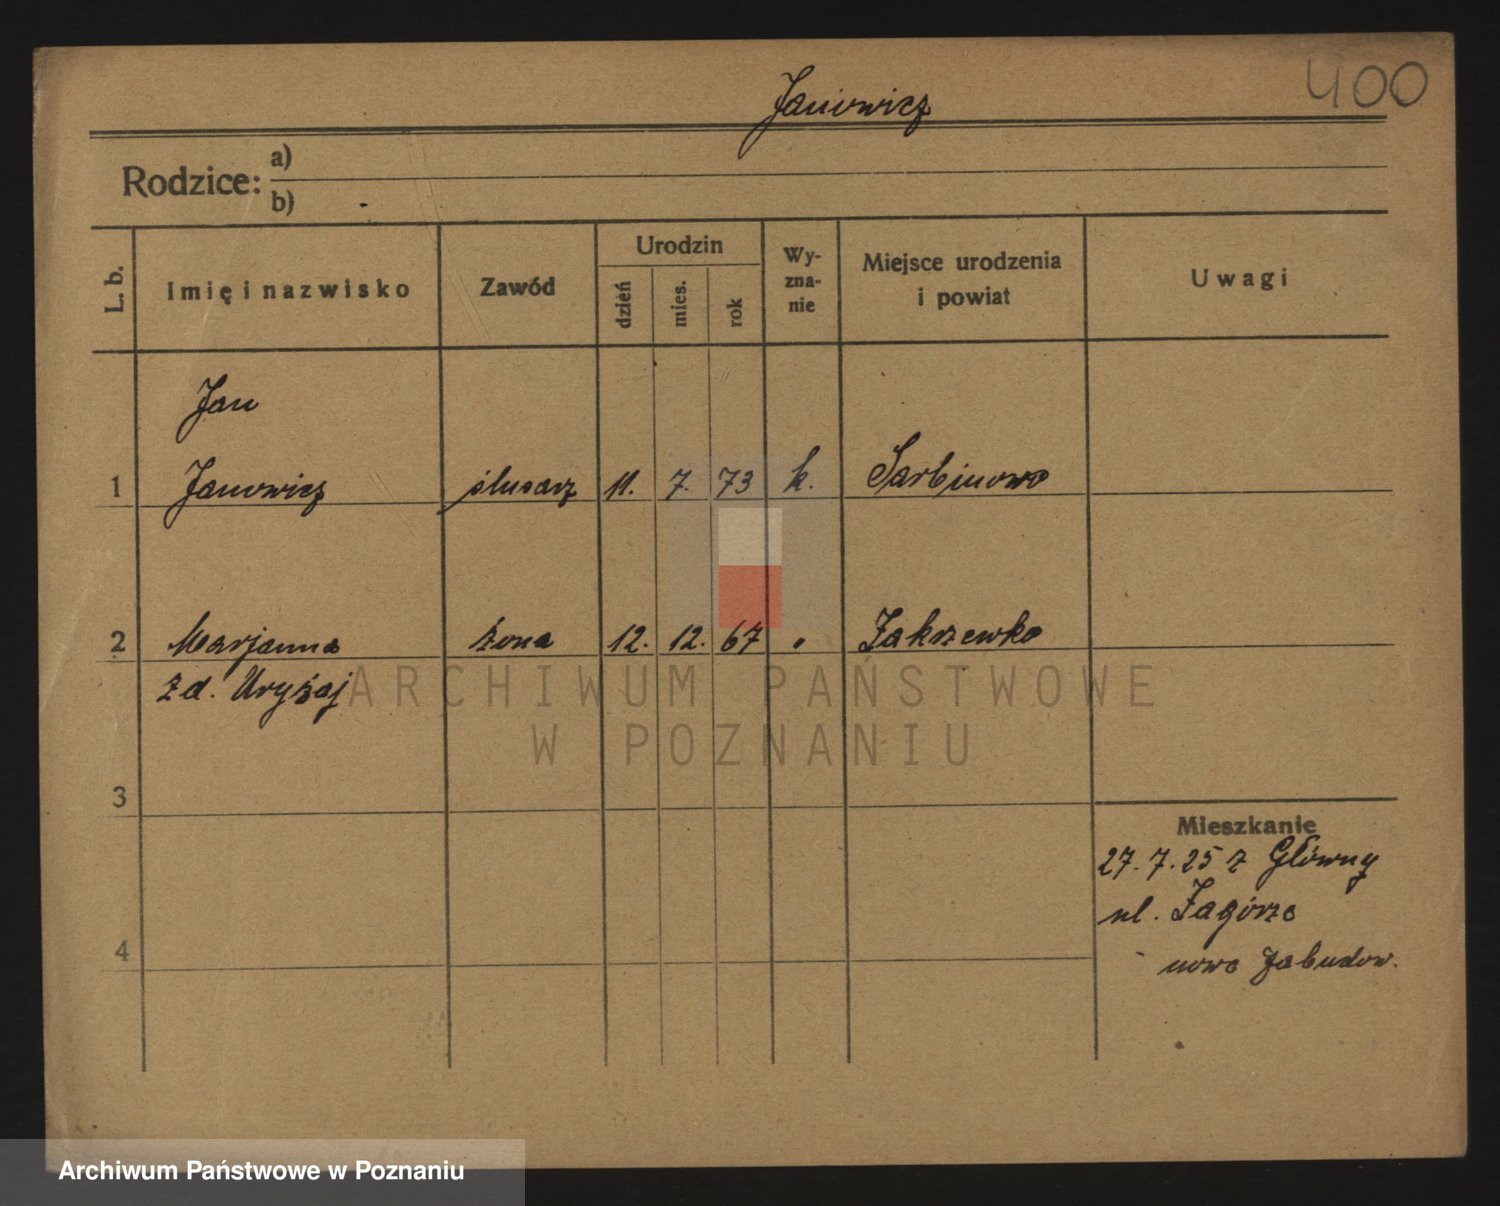 400
Janowicz
Rodzice: a)
b)
L. b.
Imię i nazwisko
Zawód
Urodzin
dzień
mies.
rok
Wy-
zna-
nie
Miejsce urodzenia
i powiat
Uwagi
Jan
1 Janowicz ślusarz 11. 7. 73 k. Sarbinowo
2 Marjanna żona 12. 12. 67 " Zakrzewko
zd. Uryzaj
ARCHIWUM PAŃSTWOWE
W POZNANIU
3
Mieszkanie
27.7.25 z Główny
ul. Zagórze
4
nowe zabudow.
Archiwum Państwowe w Poznaniu